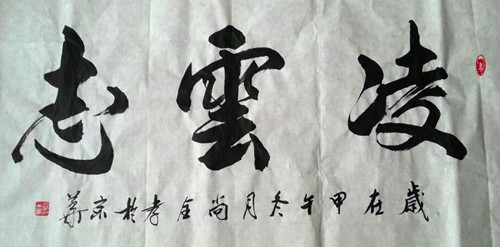 凌雲志
歲在甲午冬月尚全孝於京華